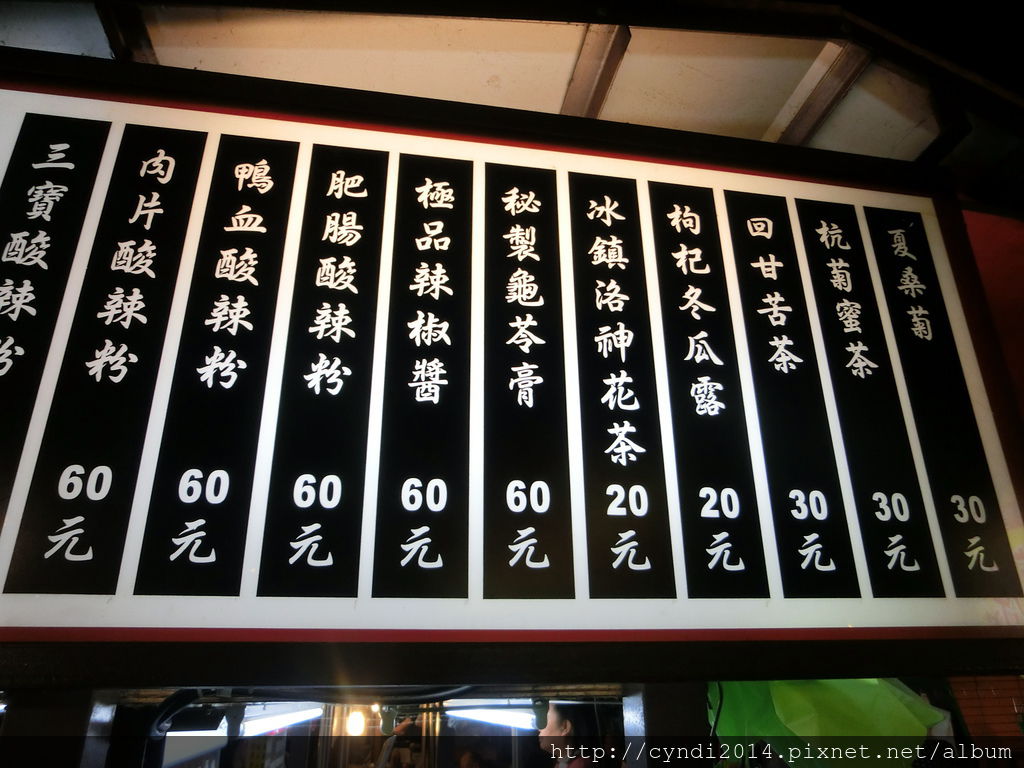 夏桑菊 30元
杭菊蜜茶 30元
回甘苦茶 30元
枸杞冬瓜露 20元
冰鎮洛神花茶 20元
秘製龜苓膏 60元
極品辣椒醬 60元
肥腸酸辣粉 60元
鴨血酸辣粉 60元
肉片酸辣粉 60元
三寶酸辣粉
http://cyndi2014.pixnet.net/album